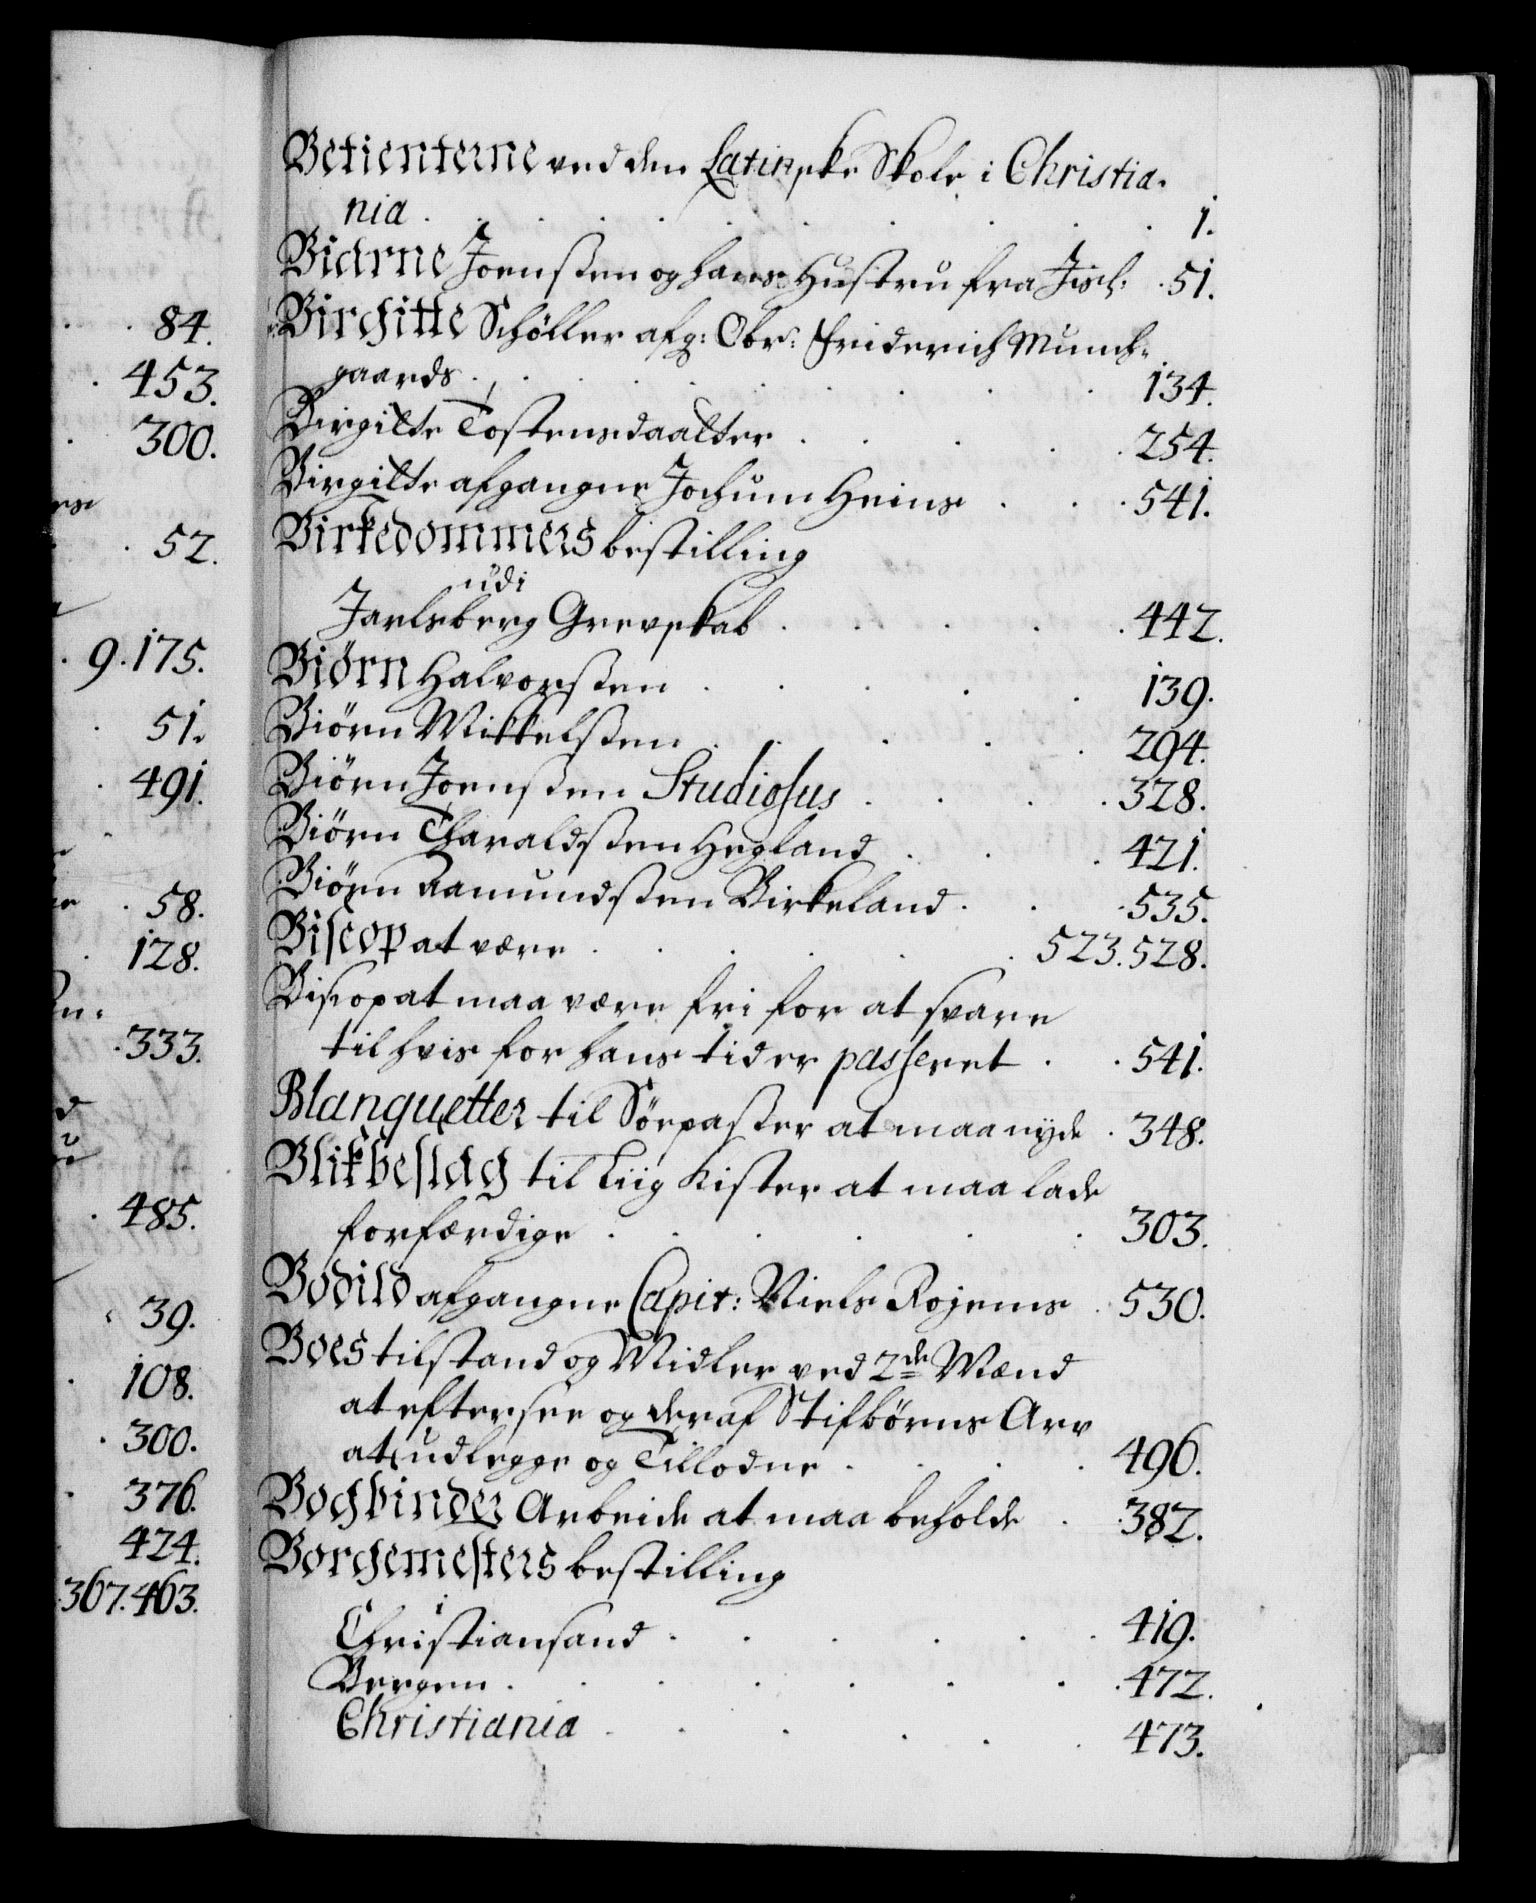 84.
453.
300.
52.
9.175.
51.
491.
58.
128.
333.
485.
39.
108.
300.
376.
424.
367.463.
Betienterne ved den Latinske Skole i Christia-
nia . . . . . . . . . 1.
Biarne Joenssen og hans Hustru fra Jisl: . 51.
Birgitte Schøller afg: Obr: Friderich Munch-
gaards . . . . . . . . 134.
Birgitte Tostensdaatter . . . . . 254.
Birgitte afgangne Jochum Heins . . . 541.
Birkedommers bestilling
udi
Jarlsberg Grevskab . . . . . 442.
Biørn Halvorssen . . . . . 139.
Biørn Mikkelssen . . . . . 294.
Biørn Joenssen Studiosus . . . . 328.
Biørn Tharaldssen Hegland . . . 421.
Biørn Aamundssen Birkeland . . . 535.
Biscop at være . . . . . 523. 528.
Biscop at maa være fri for at svare
til hvis for hans tid er passeret . . 541.
Blanquetter til Søepasser at maa nyde . 348.
Blikbeslag til Liig Kister at maa lade
forfærdige . . . . . . 303.
Bodild afgangne Capit: Niels Rojems . 530.
Boes tilstand og Midler ved 2de Mænd
at eftersee og deraf Stifbørns Arv
at udlegge og Tillodne . . . . 496.
Bogbinder Arbeide at maa beholde . . 382.
Borgemesters bestilling
i
Christiansand . . . . . . 419.
Bergen . . . . . . . . 472.
Christiania . . . . . . 473.